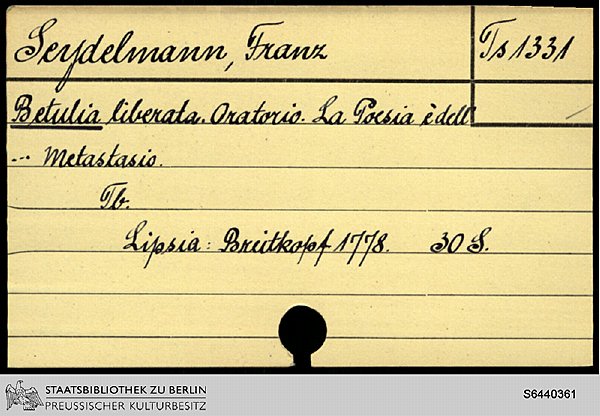 Seydelmann, Franz
Ts 1331
Betulia liberata. Oratorio. La Poesia è dell
... Metastasio.
Tb.
Lipsia: Breitkopf 1778. 30 S.
STAATSBIBLIOTHEK ZU BERLIN
PREUSSISCHER KULTURBESITZ
S6440361